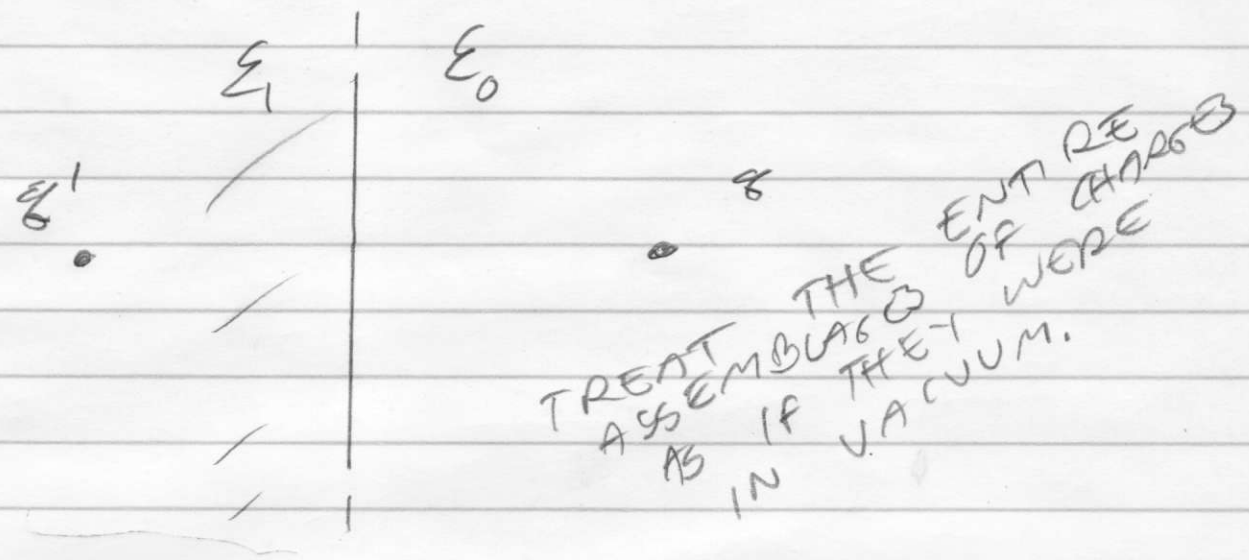 ε₁ ε₀
q' q
TREAT THE ENTIRE
ASSEMBLAGE OF CHARGES
AS IF THEY WERE
IN VACUUM.